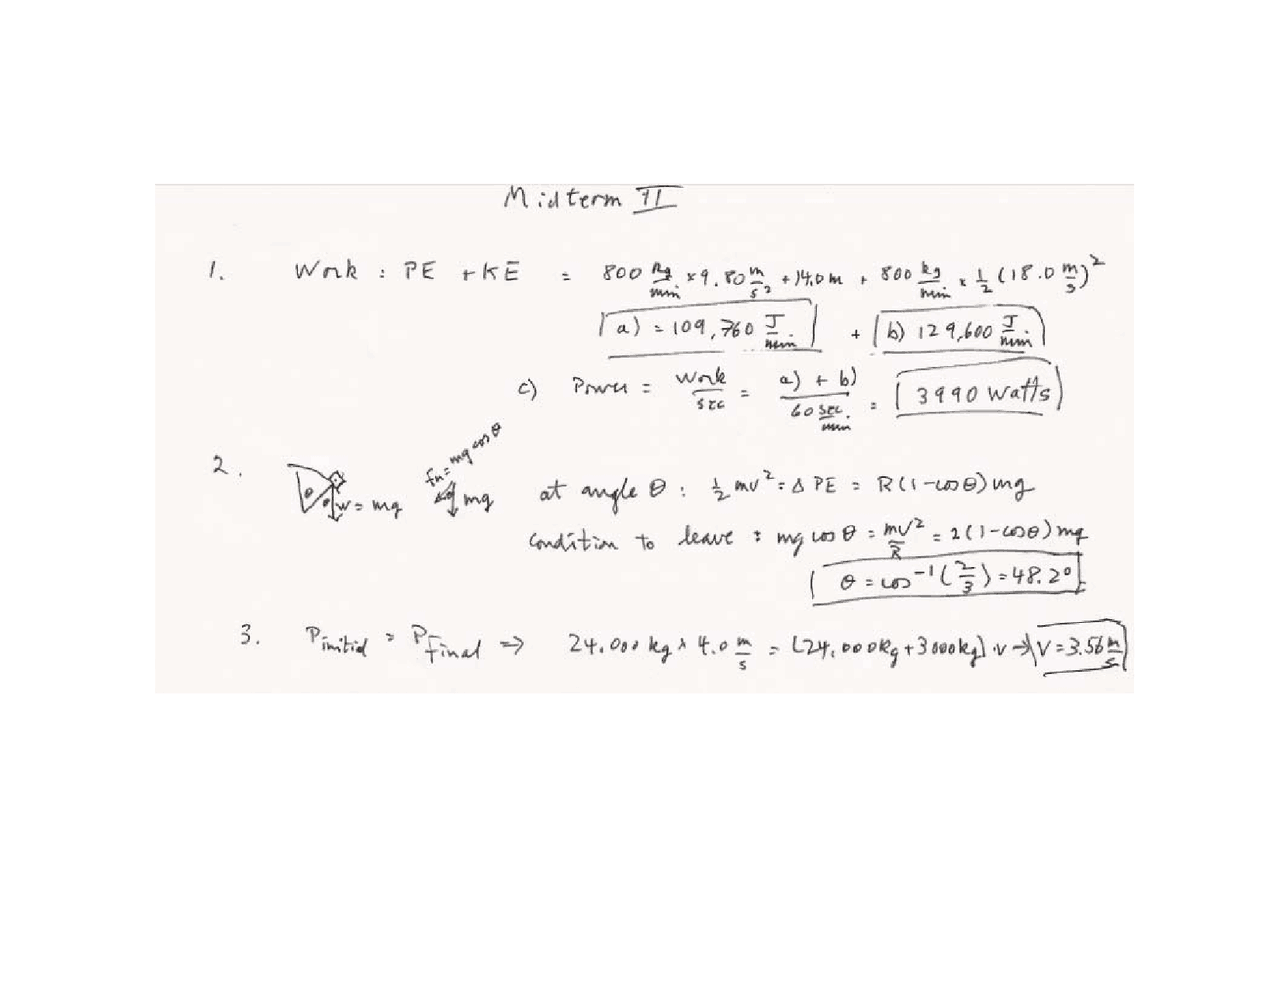 Midterm II
1. Work : PE + KE = 800 kg/min × 9.80 m/s² + 14.0 m + 800 kg/min × 1/2 (18.0 m/s)²
a) = 109,760 J/min. + b) 129,600 J/min
c) Power = Work/sec = a) + b)/60 sec./min = 3990 Watts
2. θ W = mg Fn = mg cos θ mg at angle θ : 1/2 mv² = Δ PE = R(1-cosθ) mg
Condition to leave : mg cos θ = mv²/R = 2(1-cosθ) mg
θ = cos⁻¹(2/3) = 48.2°
3. Pinitial = PFinal ⇒ 24,000 kg × 4.0 m/s = [24,000kg + 3000kg] · v → V = 3.56 m/s